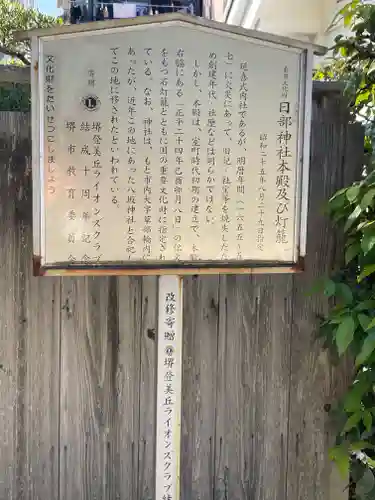 重要文化財
日部神社本殿及び灯籠
昭和二十五年八月二十九日指定
延喜式内社であるが、明暦年間(一六五五~五
七)に火災にあって、旧記・社宝等を焼失したた
め創建年代・社歴などは明らかではない。
しかし、本殿は、室町時代初期の建立で、本殿
右脇にある「正平二十四年己酉卯月八日」の
をもつ石灯籠とともに国の重要文化財に指定され
ている。なお、神社は、もと市内大字草部輪内に
あったが、近年この地にあった八坂神社と合祀し
てこの地に移されたといわれている。
寄贈 堺登美丘ライオンズクラブ
結成十周年記念
堺市教育委員会
文化財をたいせつにしましょう
改修寄贈 堺登美丘ライオンズクラブ